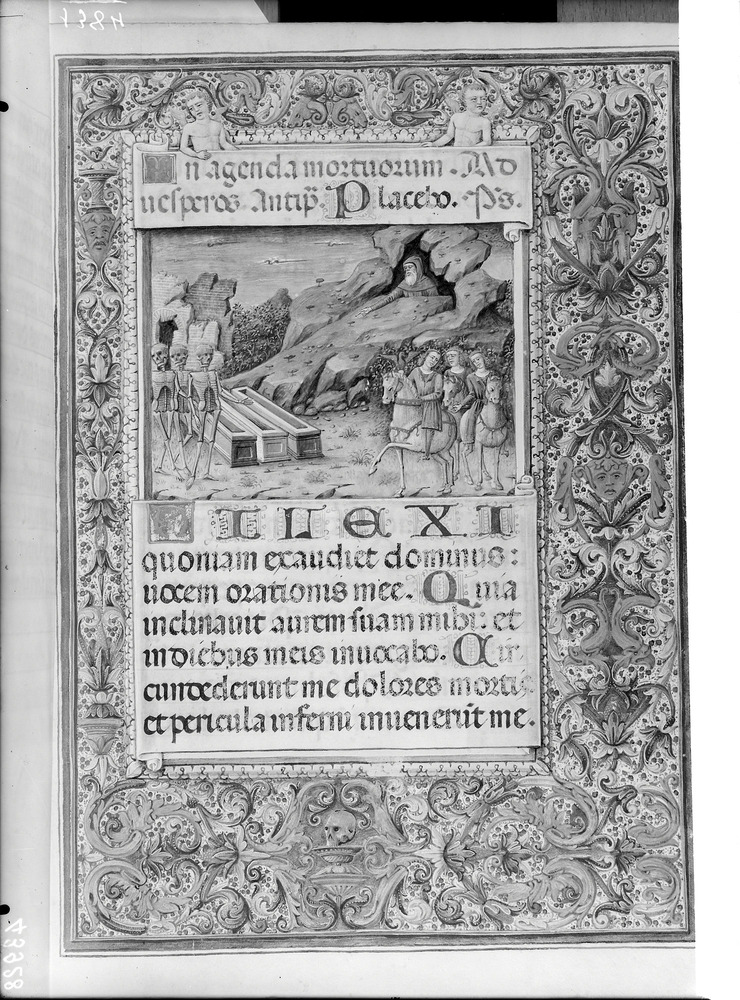 In agenda mortuorum. Ad
uesperos Antip̃. Placebo. Ps.
DILEXI
quoniam exaudiet dominus:
uocem orationis mee. Quia
inclinauit aurem suam mihi: et
in diebus meis inuocabo. Cir
cundederunt me dolores mortis
et pericula inferni inuenerũt me.
43928